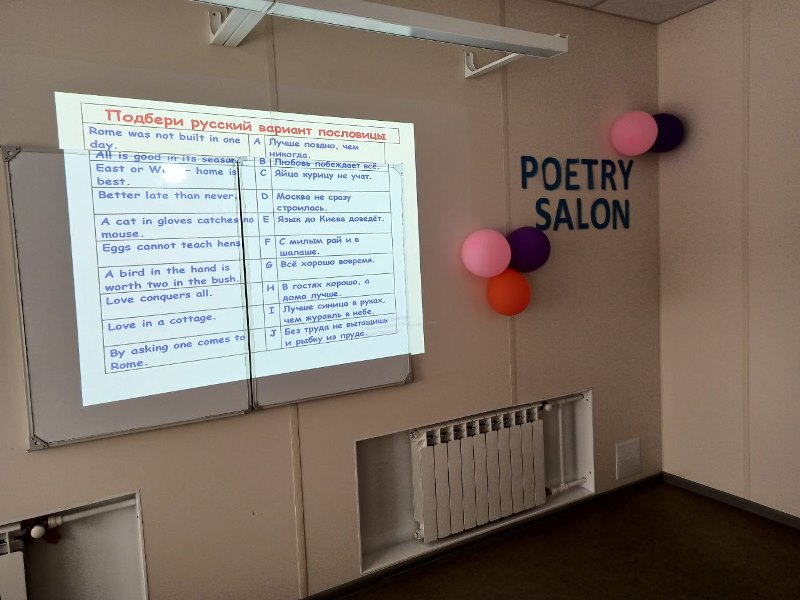 Подбери русский вариант пословицы
Rome was not built in one
day.
A
Лучше поздно, чем
никогда.
All is good in its season
B
Любовь побеждает всё.
East or home is
best.
C
Яйца курицу не учат.
Better late than never.
D
Москва не сразу
строилась.
A cat in gloves catches no
mouse.
E
Язык до Киева доведёт.
Eggs cannot teach hens
F
С милым рай и в
шалаше.
A bird in the hand is
worth two in the bush.
G
Всё хорошо вовремя.
Love conquers all.
H
В гостях хорошо, а
дома лучше.
Love in a cottage.
I
Лучше синица в руках,
чем журавль в небе.
By asking one comes to
Rome.
J
Без труда не вытащишь
и рыбку из пруда.
POETRY
SALON